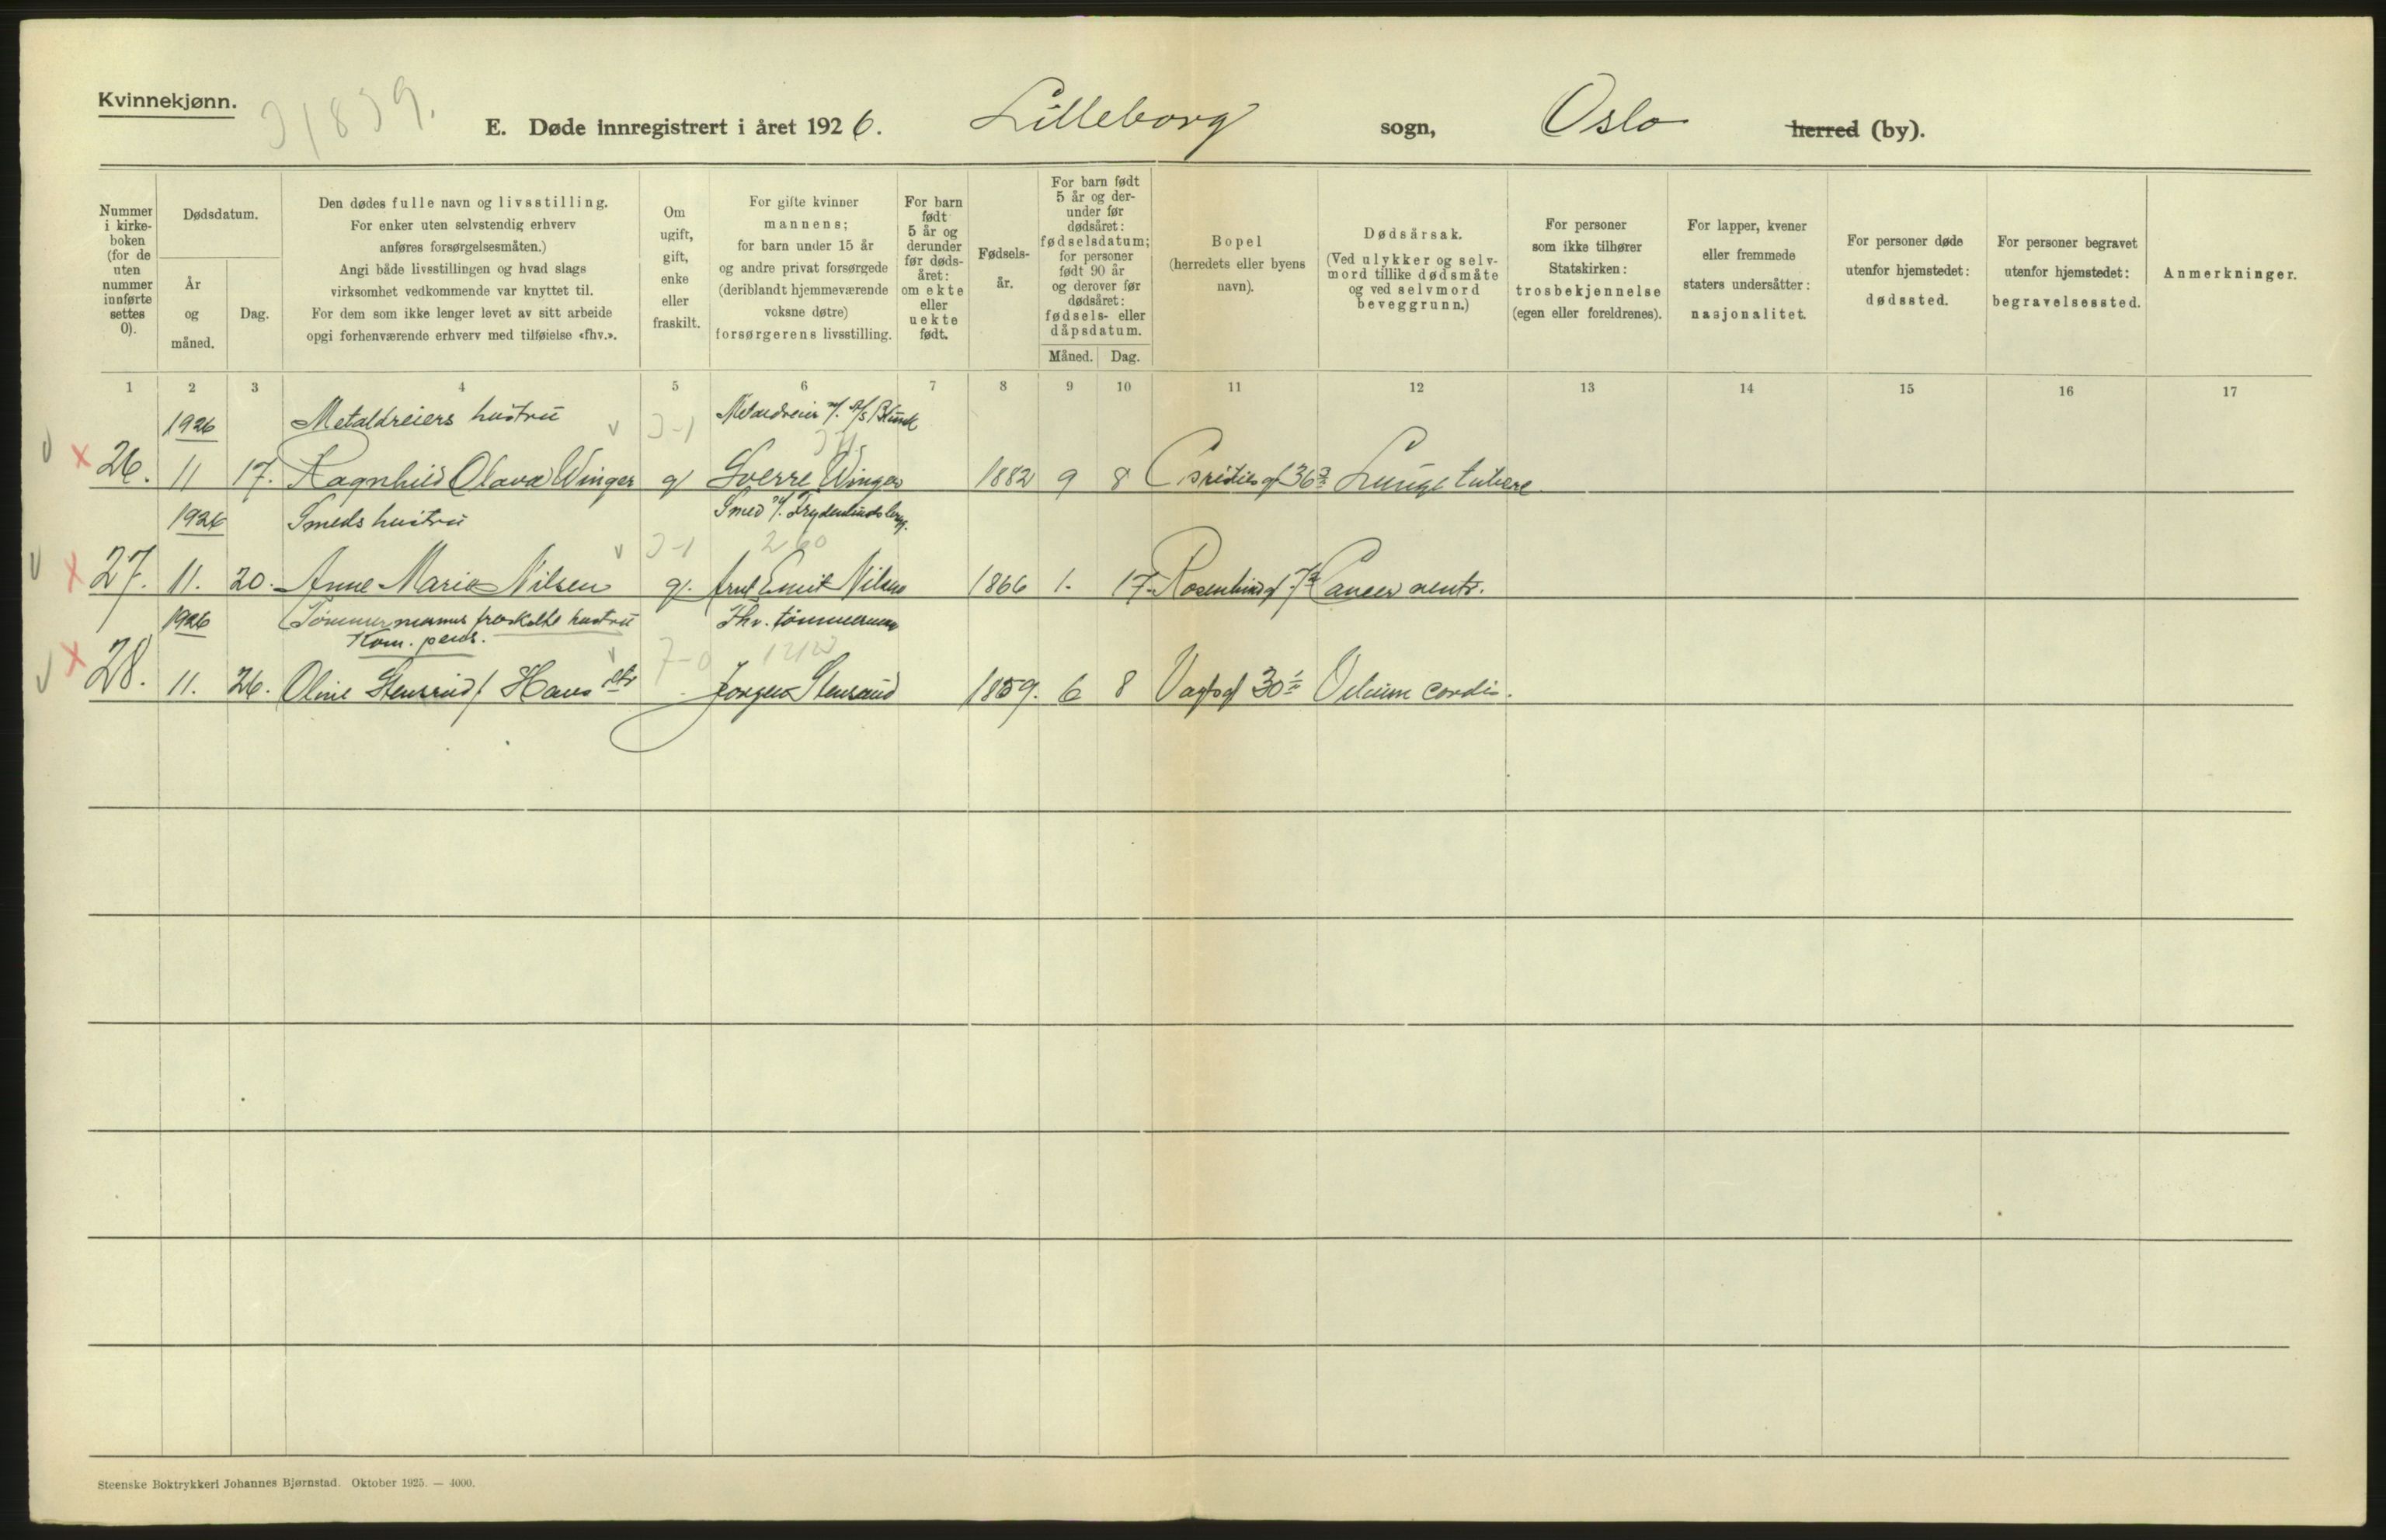 Kvinnekjønn.
E. Døde innregistrert i året 1926. Lilleborg sogn, Oslo herred (by).
Nummer i kirke- boken (for de uten nummer innførte settes 0).
Dødsdatum.
År og måned.
Dag.
Den dødes fulle navn og livsstilling.
For enker uten selvstendig erhverv
anføres forsørgelsesmåten.)
Angi både livsstillingen og hvad slags
virksomhet vedkommende var knyttet til.
For dem som ikke lenger levet av sitt arbeide
opgi forhenværende erhverv med tilføielse «fhv.».
Om ugift, gift, enke eller fraskilt.
For gifte kvinner
mannens;
for barn under 15 år
og andre privat forsørgede
(deriblandt hjemmeværende
voksne døtre)
forsørgerens livsstilling.
For barn født 5 år og derunder før døds- året: om ekte eller uekte født.
Fødsels- år.
For barn født 5 år og der- under før dødsåret: fødselsdatum; for personer født 90 år og derover før dødsåret: fødsels- eller dåpsdatum.
Måned. Dag.
Bopel
(herredets eller byens
navn).
Dødsårsak.
(Ved ulykker og selv-
mord tillike dødsmåte
og ved selvmord
beveggrunn.)
For personer
som ikke tilhører
Statskirken:
trosbekjennelse
(egen eller foreldrenes).
For lapper, kvener
eller fremmede
staters undersåtter:
nasjonalitet.
For personer døde
utenfor hjemstedet:
dødssted.
For personer begravet
utenfor hjemstedet:
begravelsessted.
Anmerkninger.
1 2 3 4 5 6 7 8 9 10 11 12 13 14 15 16 17
1926 Metaldreiers hustru
26. 11 17. Ragnhild Olava Winger g Sverre Winger 1882 9 8 36 Lunge tuberc
1926 Smeds hustru Smed
27. 11. 20. Anne Marie Nilsen g. Emil Nilsen 1866 1. 17. Cancer ventr.
1926 Tømmermanns fraskilte hustru Fhv. tømmermann
Kom. pens.
28. 11. 26. Oline Stensrud f. Hans Jørgen Stensrud 1859. 6 8 30 Vitium cordis.
Steenske Boktrykkeri Johannes Bjørnstad. Oktober 1925. — 4000.